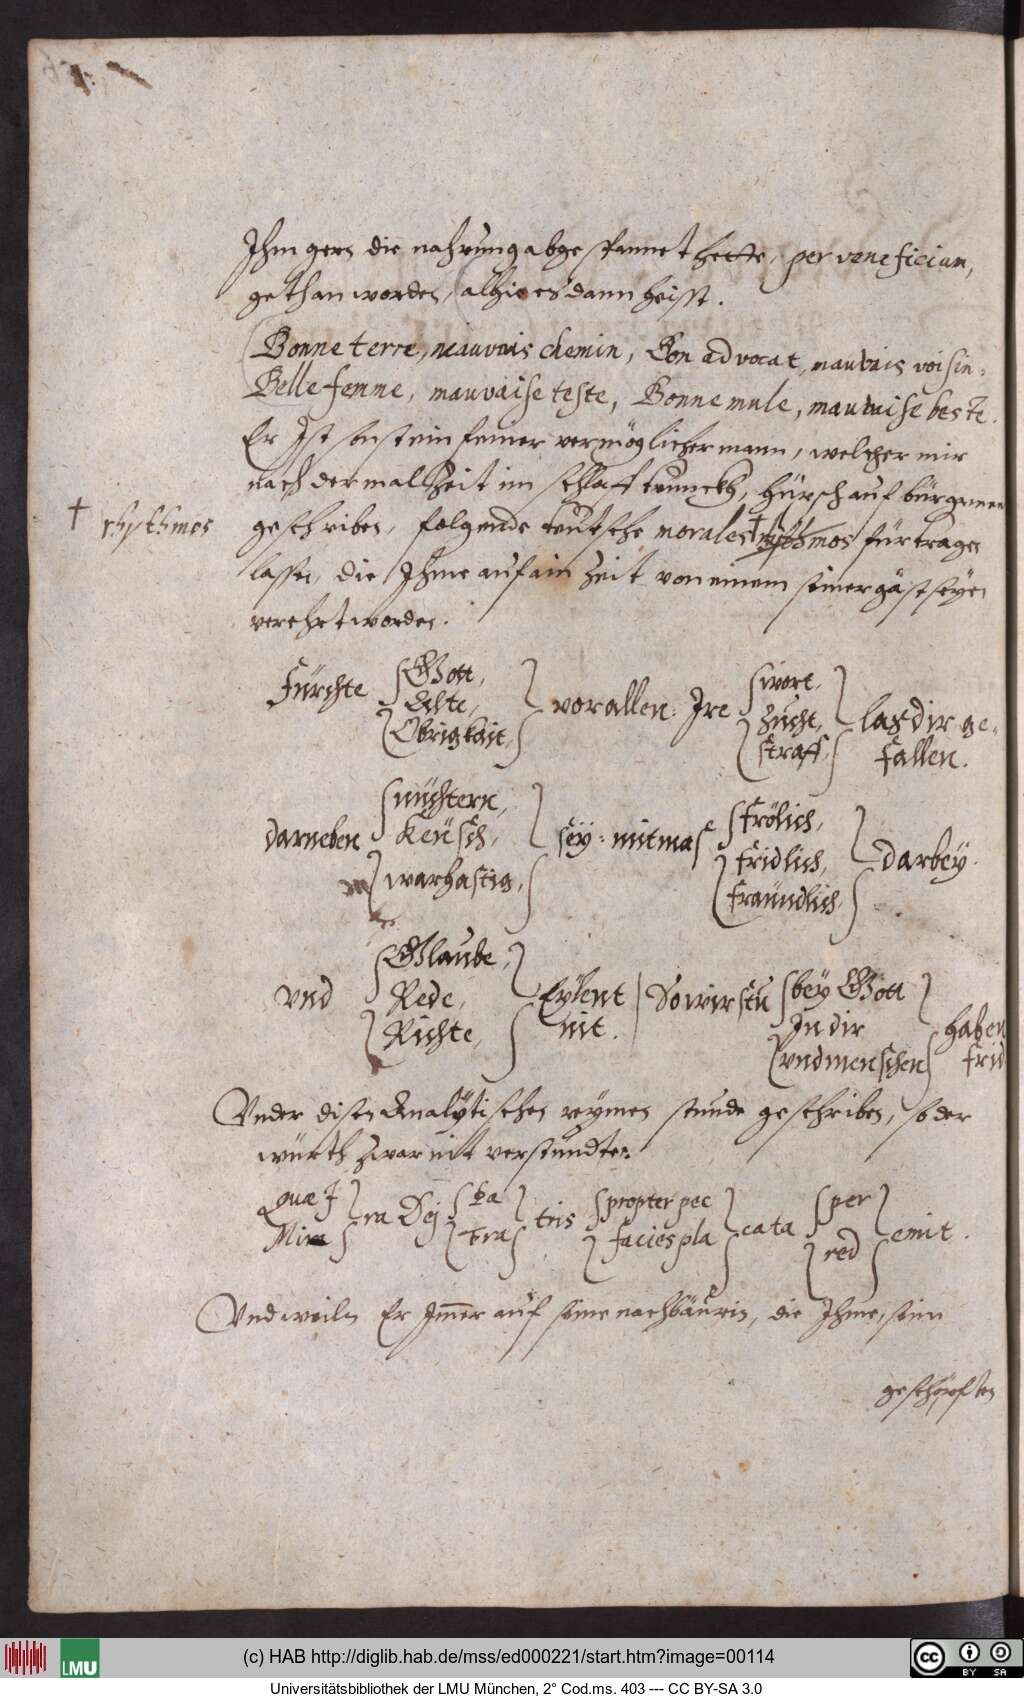 Ihm gern die nahrung abgespannet hette, per veneficium,
gethan worden, alhie es dann heisst.
Bonne terre, mauvais chemin, Bon advocat, mauvais voisin.
Belle femme, mauvaise teste, Bonne mule, mauvaise beste.
Er Ist sonst ein feiner vermöglicher mann, welcher mir
nach der malzeit im schlafftrunckh, hüpsch auf bürgamen
† rhythmos
geschriben, folgende teutsche morales † rithmos fürtragen
lassen, die Ihme auf ain Zeit von einem seiner gäst seyen
verehrt worden.
Fürchte Gott, Echte, Obrigkait, vor allen: Ire wort, Zucht, straff, las dir ge-
fallen.
darneben nüchtern, Keüsch, warhaftig, sey: mit mas frölich, fridlich, fraündlich, darbey.
vnd Glaube, Rede, Richte, Eylent nit. So wirstu bey Gott In dir vnd menschen haben frid
Vnder disen Analÿtischen reymen stunde geschriben, so der
würth zwar nit verstundte.
Quæ I Mira ra Dej Pa Fra tris propter pec facies pla cata per red emit.
Vnd weiln Er Immer auf seine nachbäurin, die Ihme, sein
geschöpften
(c) HAB http://diglib.hab.de/mss/ed000221/start.htm?image=00114
LMU
BY SA
Universitätsbibliothek der LMU München, 2° Cod.ms. 403 --- CC BY-SA 3.0